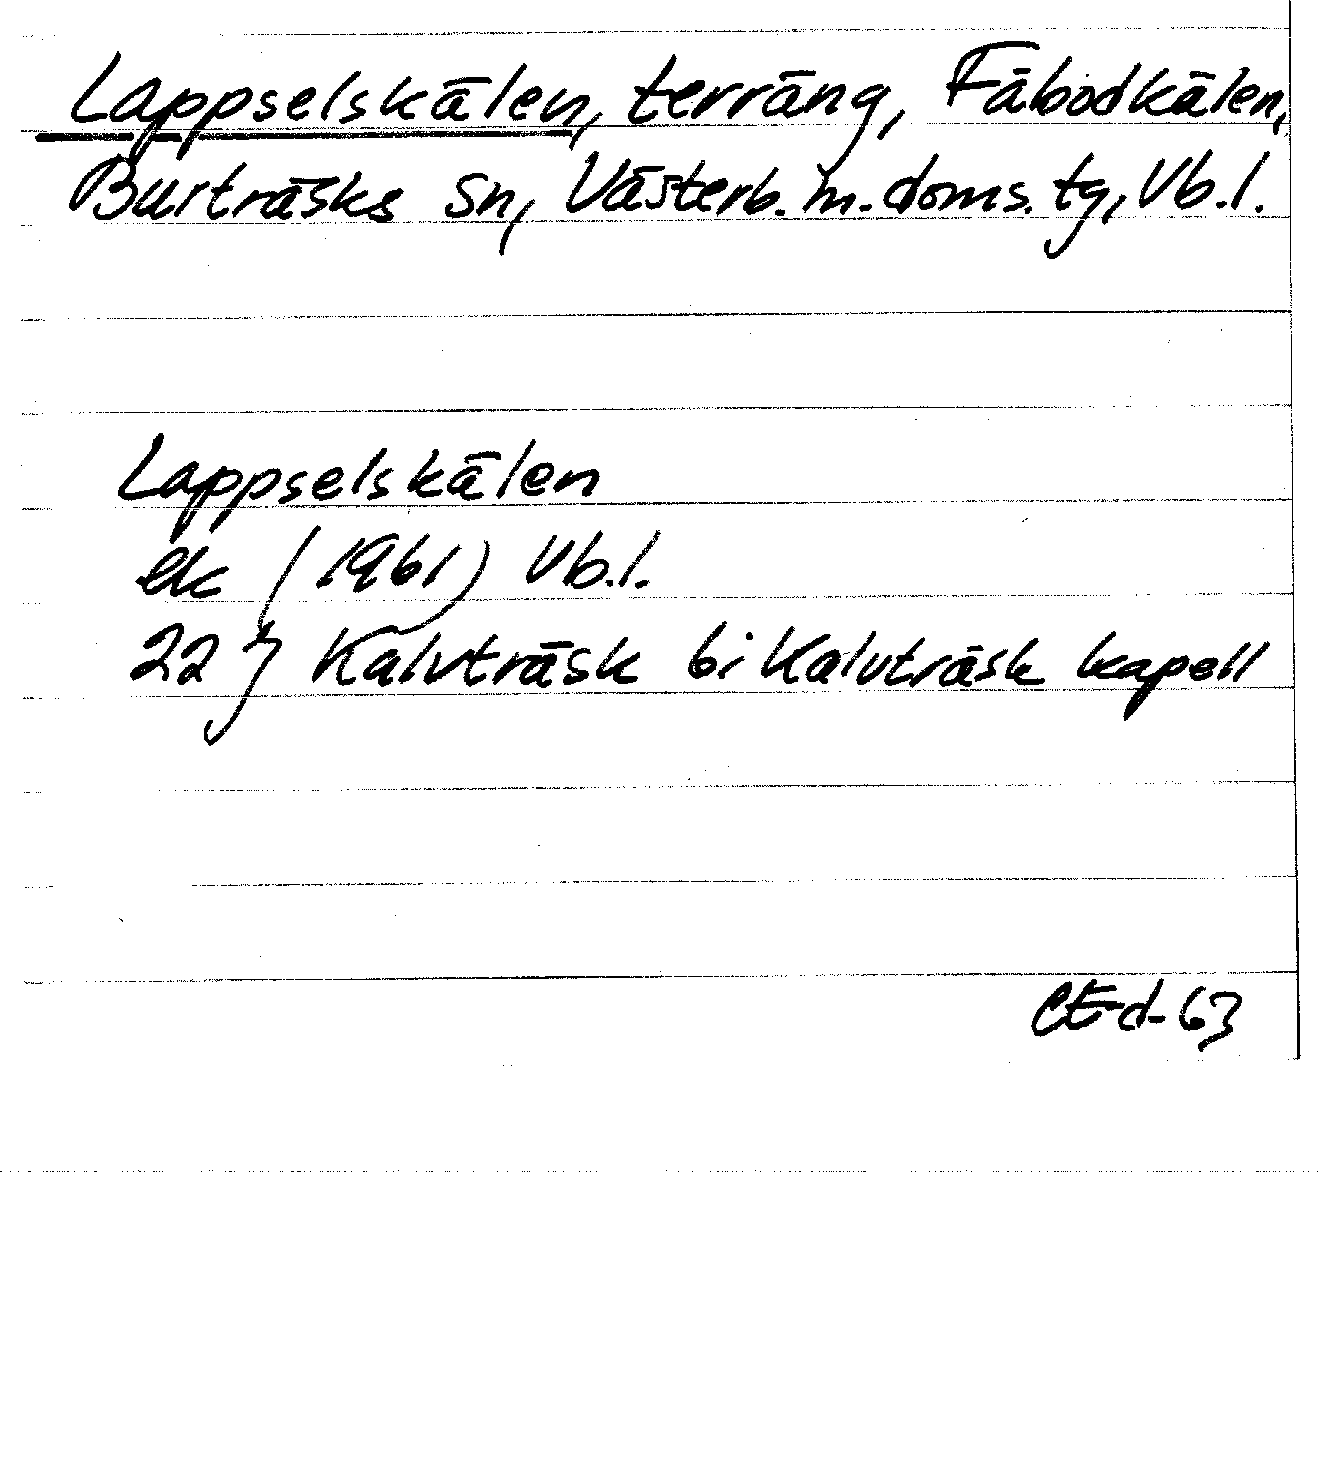 Lappselskälen, terräng, Fäbodkälen,
Burträsks sn, Västerb. m. doms. tg, Vb.l.
Lappselskälen
ek (1961) Vb.l.
22 J Kalvträsk bi Kalvträsk kapell
CE-d-63